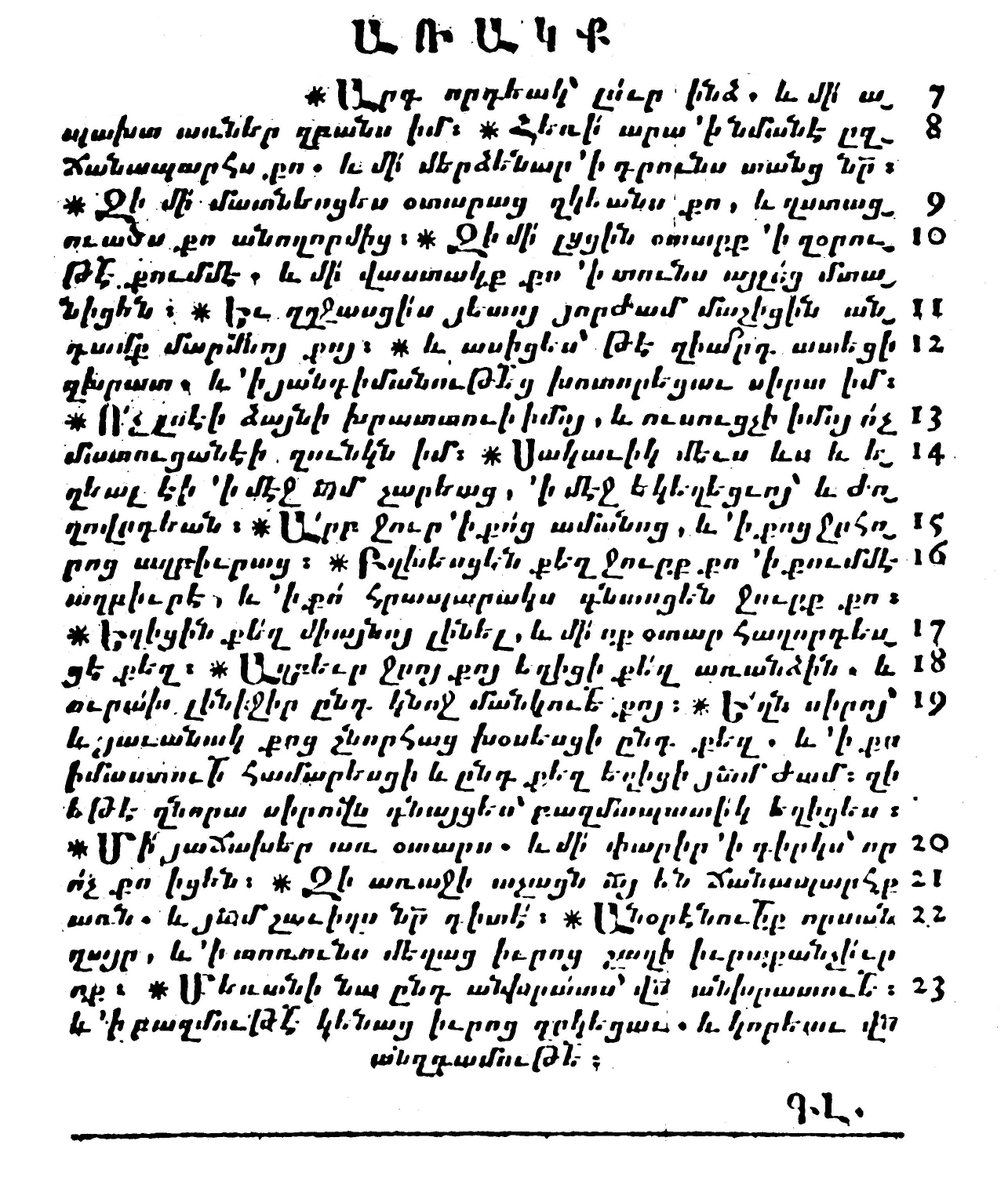 ԱՌԱԿՔ
* Արդ որդեակ՝ լո՛ւր ինձ. և մի՛ ա֊ 7
պախտ առներ զբանս իմ։ * Հեռի՛ արա ՚ի նմանէ զղ֊ 8
ճանապարհս քո. և մի՛ մերձենար ՚ի դրունս տանց նր։
* Զի մի՛ մատնեսցես օտարաց զկեանս քո, և զստաց֊ 9
ուածս քո անողորմից։ * Զի մի՛ լցցին օտարք ՚ի զօրու֊ 10
թէ քումմէ. և մի՛ վաստակք քո ՚ի տունս այլոց մտա֊
նիցեն։ * Եւ զղջասցիս յետոյ յորժամ մաշիցին ան֊ 11
դամք մարմնոյ քոյ։ * և ասիցես՝ թէ զիա՛րդ ատեցի 12
զխրատ. և ՚ի յանդիմանութեց խոտորեցաւ սիրտ իմ։
* Ո՛չ լսէի ձայնի խրատտուի իմոյ, և ուսուցչի իմոյ ո՛չ 13
մատուցանէի զունկն իմ։ * Սակաւիկ մեւս ևս և ե֊ 14
ղեալ էի ՚ի մէջ ամ չարեաց, ՚ի մէջ եկեղեցւոյ՝ և ժո֊
ղովրդեան։ * Ա՛րբ ջուր ՚ի քոց ամանոց, և ՚ի քոց ջրհո֊ 15
րոց աղբիւրաց։ * Բղխեսցեն քեզ ջուրք քո ՚ի քումմէ 16
աղբիւրէ, և ՚ի քո՛ հրապարակս գնասցեն ջուրք քո։
* Եղիցին քե՛զ միայնոյ լինել, և մի՛ ոք օտար հաղորդես֊ 17
ցէ քեզ։ * Աղբեւր ջրոյ քոյ եղիցի քե՛զ առանձին. և 18
ուրա՛խ լինիջիր ընդ կնոջ մանկուե քոյ։ * Ե՛ղն սիրոյ՝ 19
և յաւանակ քոց շնորհաց խօսեսցի ընդ քեզ. և ՚ի քո
իմաստուի համարեսցի և ընդ քեզ եղիցի յամ ժամ։ զի
եթէ զնորա սիրովն գնայցես՝ բազմապատիկ եղիցես։
* Մի՛ յաճախեր առ օտարս. և մի՛ փարիր ՚ի գիրկս՝ որ 20
ո՛չ քո իցեն։ * Զի առաջի աչացն այ են ճանապարհք 21
առն. և յամ շաւիղս նր դիտէ։ * Անօրէնուիք որսան 22
զայր, և ՚ի տոռունս մեղաց իւրոց շաղի իւրաքանչիւր
ոք։ * Մեռանի նա ընդ անխրատս՝ վն անխրատուե։ 23
և ՚ի բազմութէ կենաց իւրոց զրկեցաւ. և կորեաւ վն
անզգամութե։
Գ.Լ.